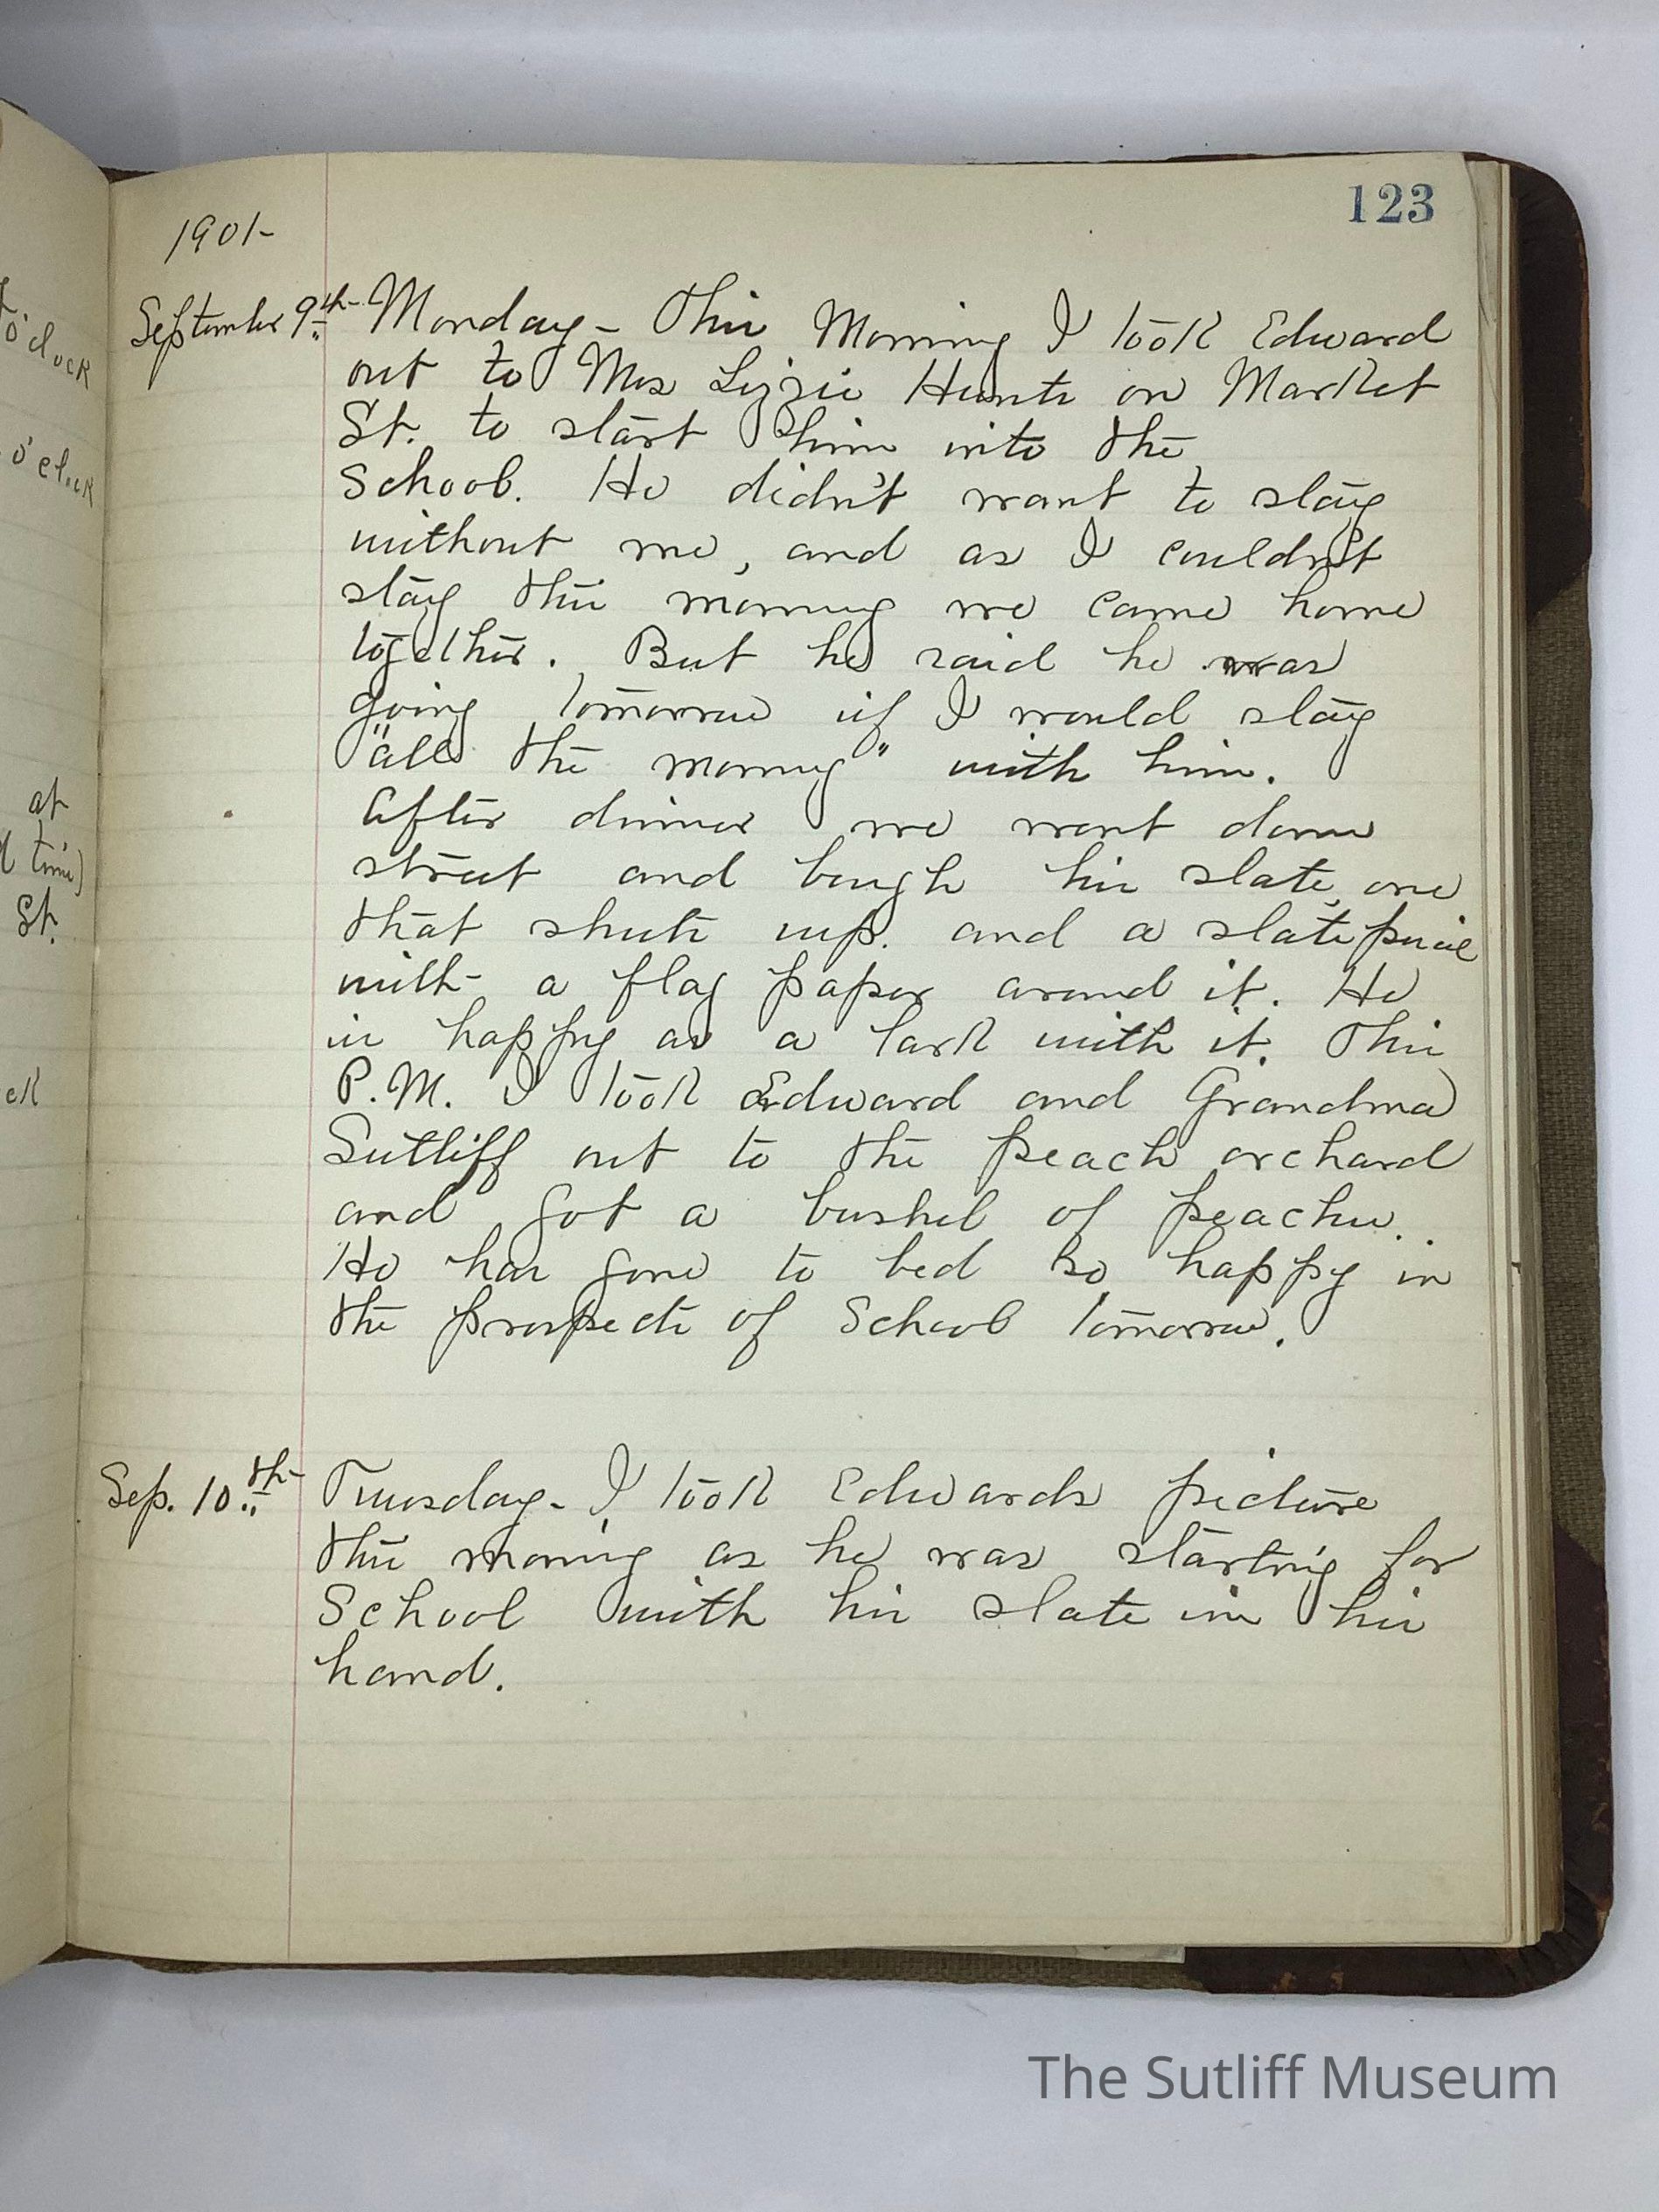 o'clock
o'clock
at
time)
St.
ck
123
1901-
September 9th- Monday - This Morning I took Edward
out to Mrs Lizzie Hunts on Market
St. to start him into the
School. He didn't want to stay
without me, and as I couldn't
stay this morning we came home
together. But he said he was
going tomorrow if I would stay
"all the morning" with him.
After dinner we went down
street and bough his slate, one
that shuts up. and a slate pencil
with a flag paper around it. He
is happy as a lark with it. This
P.M. I took Edward and Grandma
Sutliff out to the peach orchard
and got a bushel of peaches.
He has gone to bed so happy in
the prospects of School tomorrow.
Sep. 10th- Tuesday - I took Edwards picture
this morning as he was starting for
School with his slate in his
hand.
The Sutliff Museum